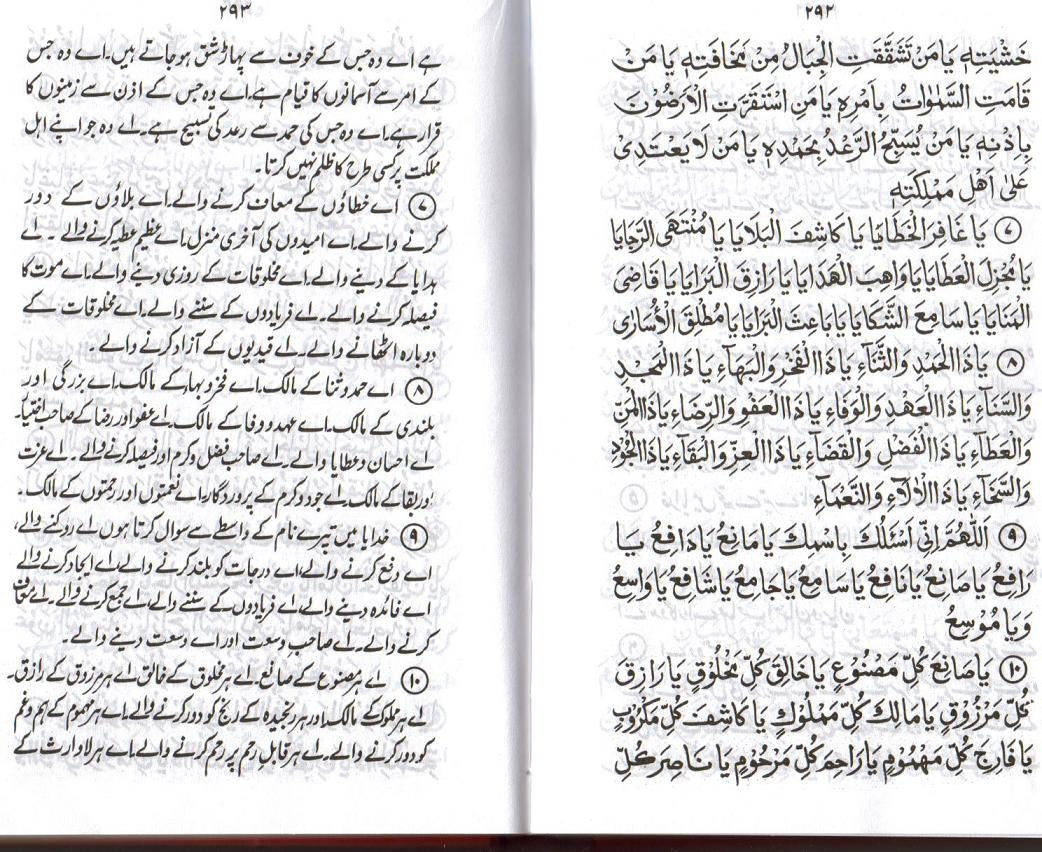 ۲۹۲
خَشْيَتِهٖ يَا مَنْ تَشَقَّقَتِ الْجِبَالُ مِنْ مَخَافَتِهٖ يَا مَنْ
قَامَتِ السَّمٰوَاتُ بِاَمْرِهٖ يَا مَنِ اسْتَقَرَّتِ الْاَرَضُوْنَ
بِاِذْنِهٖ يَا مَنْ يُسَبِّحُ الرَّعْدُ بِحَمْدِهٖ يَا مَنْ لَا يَعْتَدِىْ
عَلٰى اَهْلِ مَمْلِكَتِهٖ
۷ يَا غَافِرَ الْخَطَايَا يَا كَاشِفَ الْبَلَايَا يَا مُنْتَهَى الرَّجَايَا
يَا مُجْزِلَ الْعَطَايَا يَا وَاهِبَ الْهَدَايَا يَا رَازِقَ الْبَرَايَا يَا قَاضِىَ
الْمَنَايَا يَا سَامِعَ الشَّكَايَا يَا بَاعِثَ الْبَرَايَا يَا مُطْلِقَ الْاُسَارٰى
۸ يَا ذَا الْحَمْدِ وَالثَّنَآءِ يَا ذَا الْفَخْرِ وَالْبَهَآءِ يَا ذَا الْمَجْدِ
وَالسَّنَآءِ يَا ذَا الْعَهْدِ وَالْوَفَآءِ يَا ذَا الْعَفْوِ وَالرِّضَآءِ يَا ذَا الْمَنِّ
وَالْعَطَآءِ يَا ذَا الْفَضْلِ وَالْقَضَآءِ يَا ذَا الْعِزِّ وَالْبَقَآءِ يَا ذَا الْجُوْدِ
وَالسَّخَآءِ يَا ذَا الْاٰلَآءِ وَالنَّعْمَآءِ
۹ اَللّٰهُمَّ اِنِّىْ اَسْئَلُكَ بِاسْمِكَ يَا مَانِعُ يَا دَافِعُ يَا
رَافِعُ يَا صَانِعُ يَا نَافِعُ يَا سَامِعُ يَا جَامِعُ يَا شَافِعُ يَا وَاسِعُ
وَيَا مُوْسِعُ
۱۰ يَا صَانِعَ كُلِّ مَصْنُوْعٍ يَا خَالِقَ كُلِّ مَخْلُوْقٍ يَا رَازِقَ
كُلِّ مَرْزُوْقٍ يَا مَالِكَ كُلِّ مَمْلُوْكٍ يَا كَاشِفَ كُلِّ مَكْرُوْبٍ
يَا فَارِجَ كُلِّ مَهْمُوْمٍ يَا رَاحِمَ كُلِّ مَرْحُوْمٍ يَا نَاصِرَ كُلِّ
۲۹۳
ہے اے وہ جس کے خوف سے پہاڑ شق ہو جاتے ہیں۔ اے وہ جس
کے امر سے آسمانوں کا قیام ہے اے وہ جس کے اذن سے زمینوں کا
قرار ہے۔ اے وہ جس کی حمد سے رعد کی تسبیح ہے۔ اے وہ جو اپنے اہل
مملکت پر کسی طرح کا ظلم نہیں کرتا۔
۷ اے خطاؤں کے معاف کرنے والے۔ اے بلاؤں کے دور
کرنے والے۔ اے امیدوں کی آخری منزل۔ اے عظیم عطیہ کرنے والے۔ اے
ہدایا کے دینے والے۔ اے مخلوقات کے روزی دینے والے۔ اے موت کا
فیصلہ کرنے والے۔ اے فریادوں کے سننے والے۔ اے مخلوقات کے
دوبارہ اٹھانے والے۔ اے قیدیوں کے آزاد کرنے والے۔
۸ اے حمد و ثنا کے مالک۔ اے فخر و بہا کے مالک۔ اے بزرگی اور
بلندی کے مالک۔ اے عہد و وفا کے مالک۔ اے عفو اور رضا کے صاحب اختیار۔
اے احسان و عطایا والے۔ اے صاحب فضل و کرم اور فیصلہ کرنے والے۔ اے عزت
اور بقا کے مالک۔ اے جود و کرم کے پروردگار۔ اے نعمتوں اور رحمتوں کے مالک۔
۹ خدایا میں تیرے نام کے واسطے سے سوال کرتا ہوں اے روکنے والے،
اے دفع کرنے والے، اے درجات کو بلند کرنے والے، اے ایجاد کرنے والے
اے فائدہ دینے والے، اے فریادوں کے سننے والے، اے جمع کرنے والے۔ اے
کرنے والے۔ اے صاحب وسعت اور اے وسعت دینے والے۔
۱۰ اے ہر مصنوع کے صانع، اے ہر مخلوق کے خالق اے ہر مرزوق کے رازق۔
اے ہر مملوک کے مالک اور ہر رنجیدہ کے رنج کو دور کرنے والے۔ اے ہر مہموم کے ہم و غم
کو دور کرنے والے۔ اے ہر قابل رحم پر رحم کرنے والے۔ اے ہر لاوارث کے